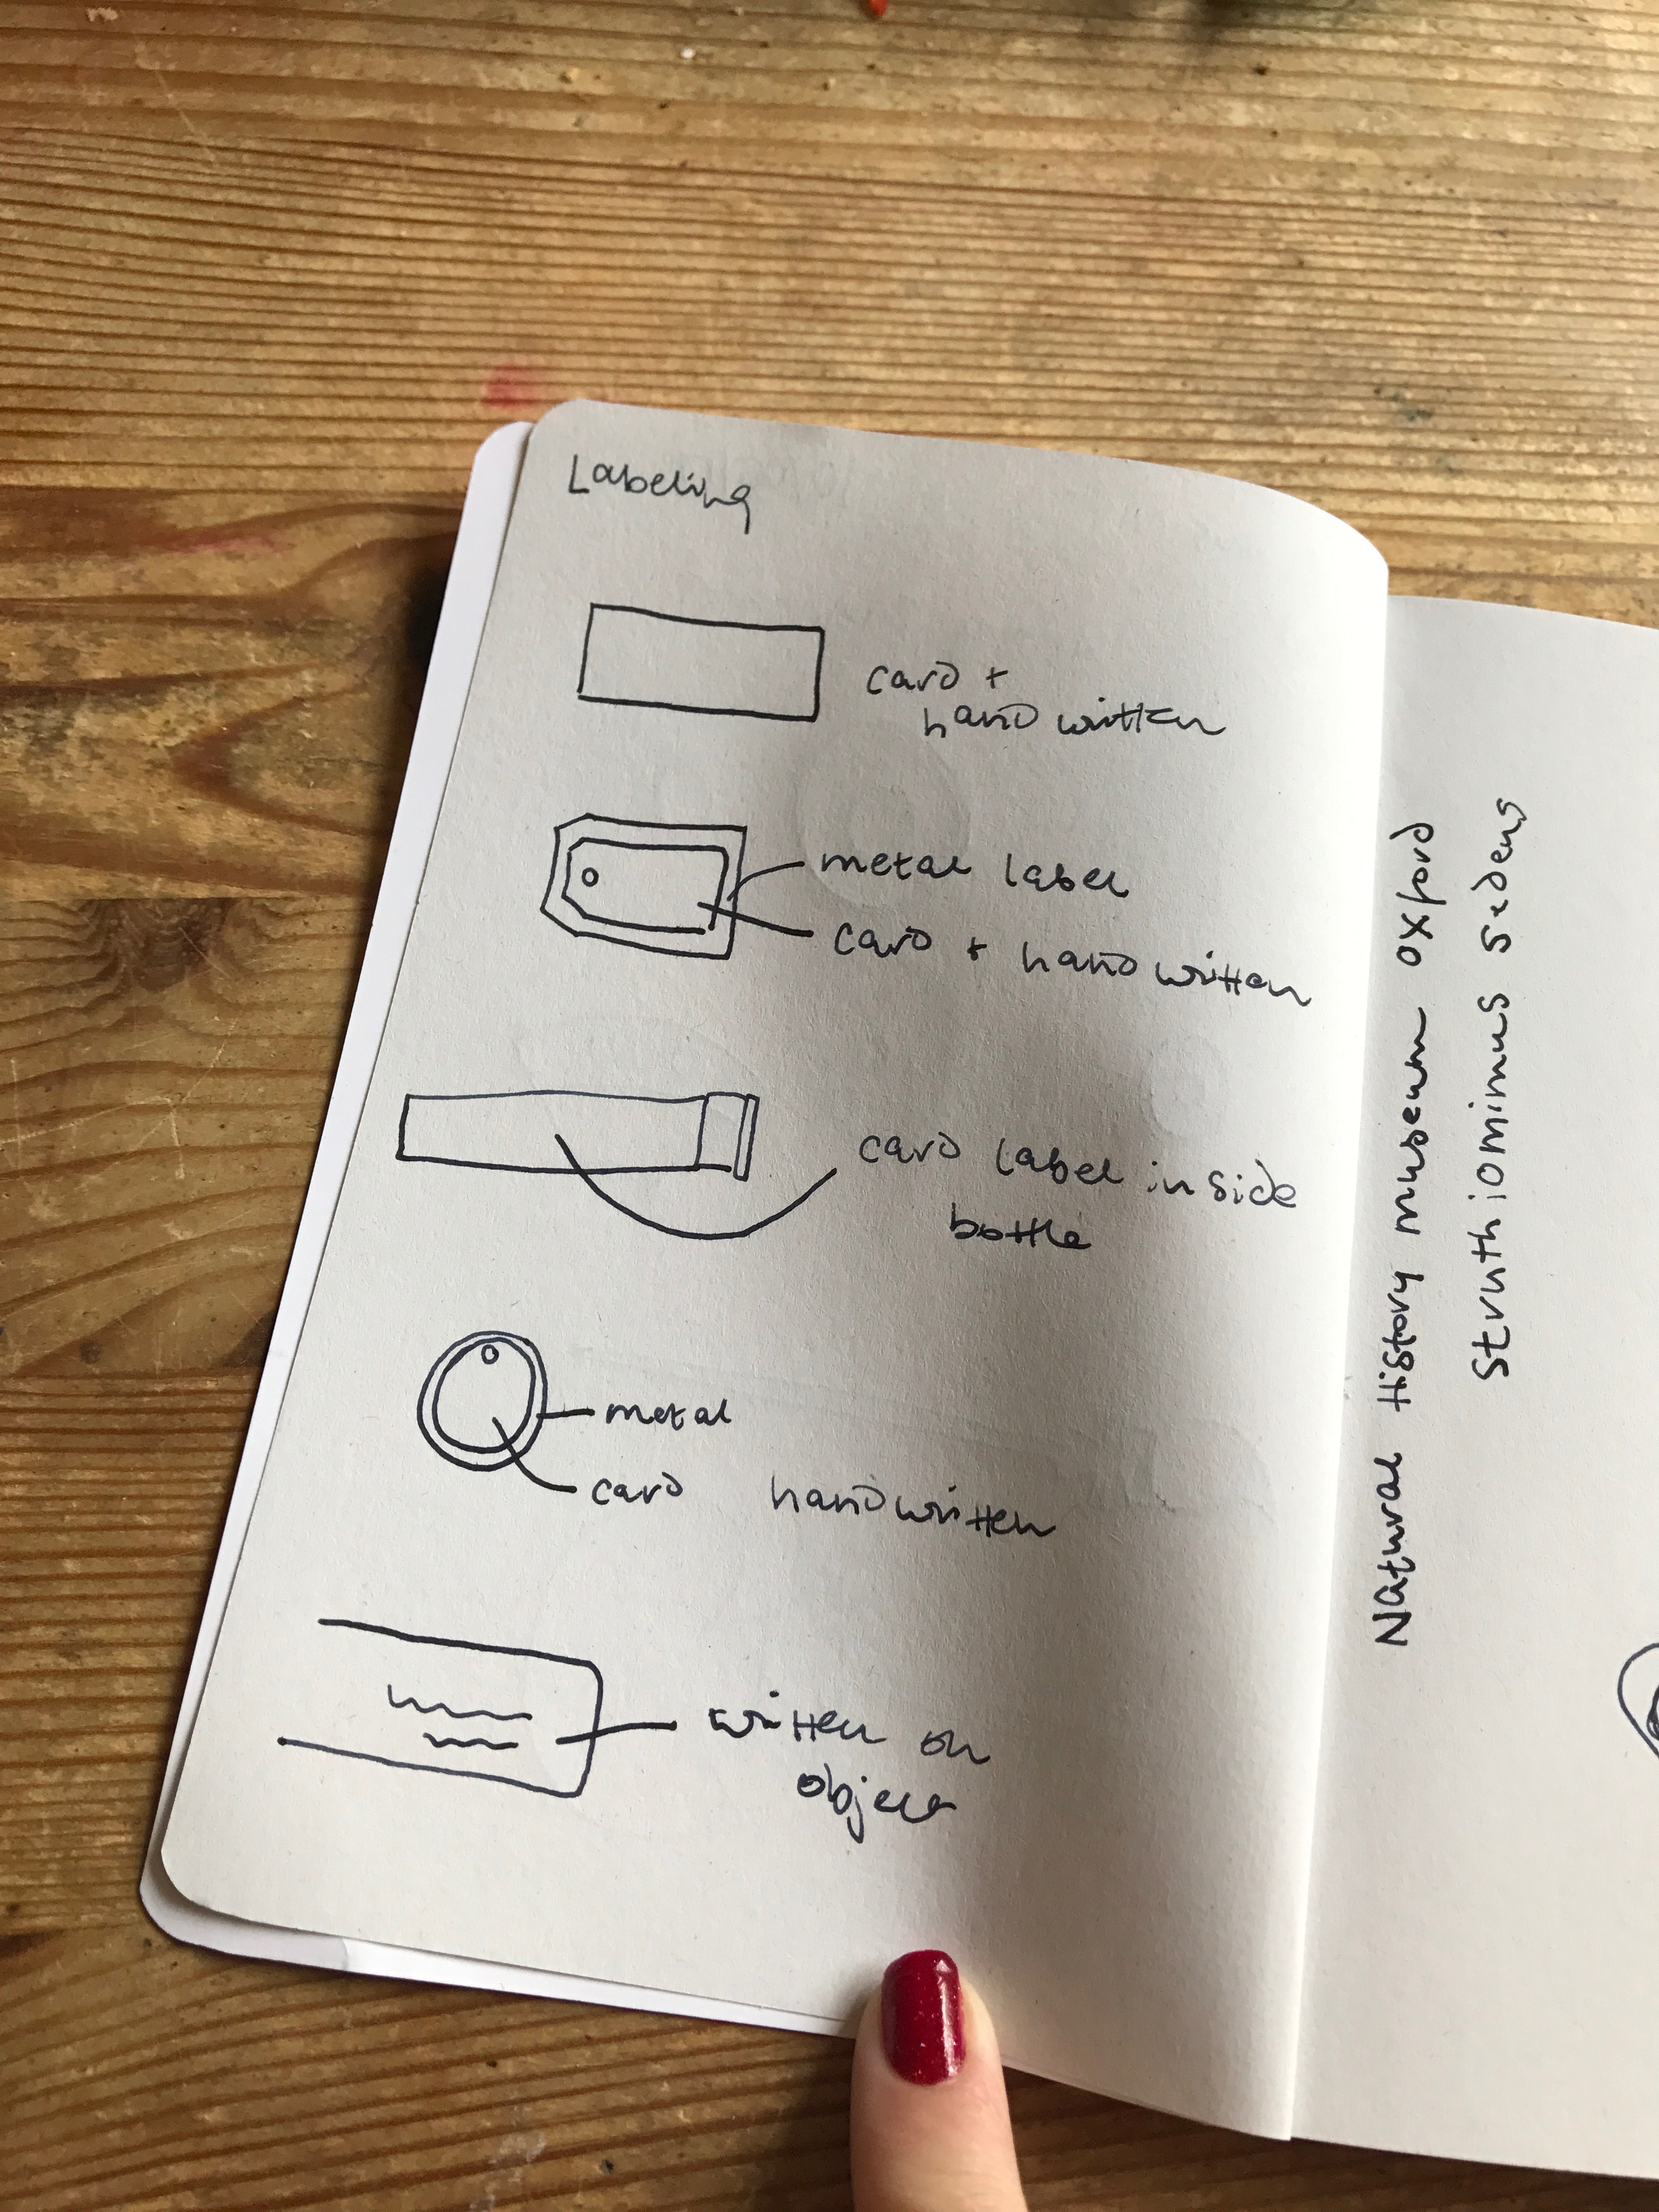 Labeling
card +
hand written
metal label
card + hand written
card label inside
bottle
metal
card handwritten
written on
object
Natural History museum Oxford
struthiominus sedens